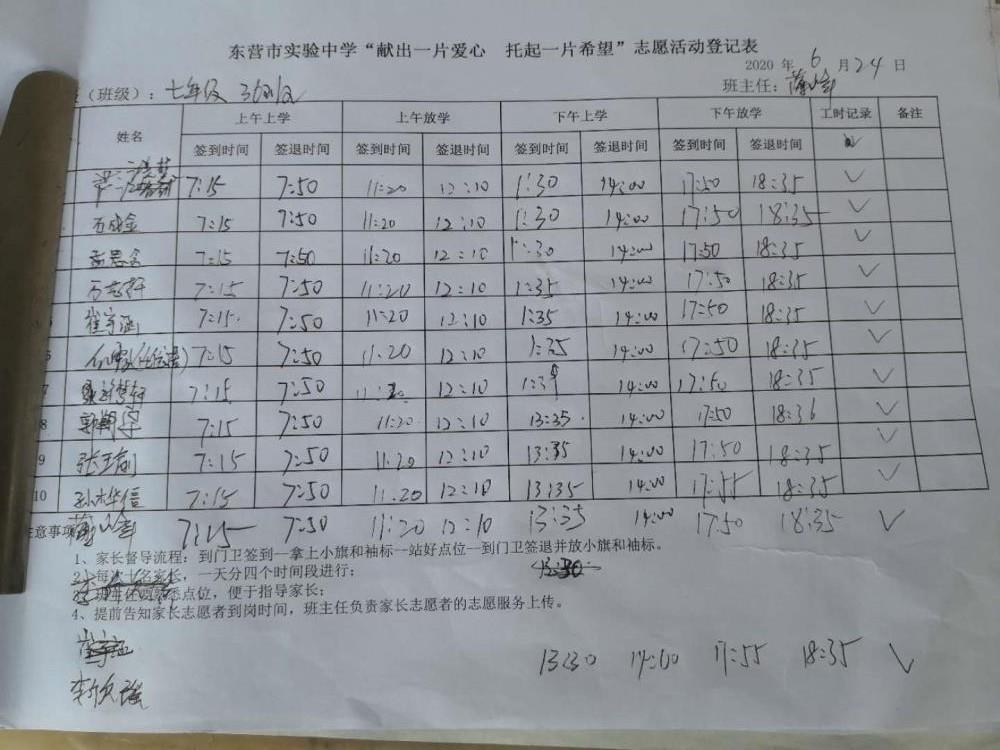 东营市实验中学“献出一片爱心 托起一片希望”志愿活动登记表
2020 年 6 月 24 日
（班级）：七年级 36班 班主任：
姓名 上午上学 上午放学 下午上学 下午放学 工时记录 备注
签到时间 签退时间 签到时间 签退时间 签到时间 签退时间 签到时间 签退时间
7:15 7:50 11:20 12:10 1:30 14:00 17:50 18:35 ✓
石成金 7:15 7:50 11:20 12:10 1:30 14:00 17:50 18:35 ✓
7:15 7:50 11:20 12:10 1:30 14:00 17:50 18:35 ✓
7:15 7:50 11:20 12:10 1:35 14:00 17:50 18:35 ✓
崔宇涵 7:15 7:50 11:20 12:10 1:35 14:00 17:50 18:35 ✓
7:15 7:50 11:20 12:10 1:35 14:00 17:50 18:35 ✓
7 7:15 7:50 11:20 12:10 1:35 14:00 17:50 18:35 ✓
8 7:15 7:50 11:20 12:10 13:35 14:00 17:50 18:36 ✓
9 7:15 7:50 11:20 12:10 13:35 14:00 17:50 18:35 ✓
10 7:15 7:50 11:20 12:10 13:35 14:00 17:55 18:35 ✓
注意事项 7:15 7:50 11:20 12:10 13:35 14:00 17:50 18:35 ✓
1、家长督导流程：到门卫签到—拿上小旗和袖标—站好点位—到门卫签退并放小旗和袖标。
家长，一天分四个时间段进行；
点位，便于指导家长；
4、提前告知家长志愿者到岗时间，班主任负责家长志愿者的志愿服务上传。
13:30 14:00 17:55 18:35 ✓